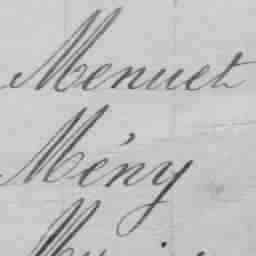 Menuet
Mény